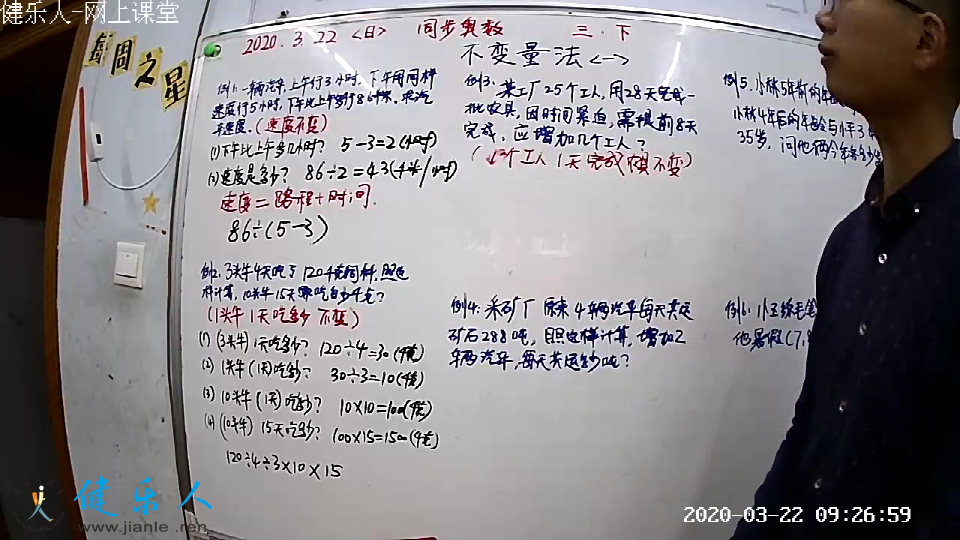 健乐人-网上课堂
每周之星
2020.3.22 <日> 同步奥数 三.下
不变量法<一>
例1:一辆汽车,上午行3小时,下午用同样
速度行5小时,下午比上午多行86千米,求汽
车速度.(速度不变)
(1)下午比上午多几小时? 5-3=2(小时)
(2)速度是多少? 86÷2=43(千米/小时)
速度=路程÷时间.
86÷(5-3)
例2.3头牛4天吃了120千克饲料,照这
样计算,10头牛15天要吃多少千克?
(1头牛1天吃多少 不变)
(1) (3头牛) 1天吃多少? 120÷4=30(千克)
(2) 1头牛(1天)吃多少? 30÷3=10(千克)
(3) 10头牛(1天)吃多少? 10×10=100(千克)
(4) (10头牛) 15天吃多少? 100×15=1500(千克)
120÷4÷3×10×15
例3:某工厂25个工人,用28天完成一
批农具,因时间紧迫,需提前8天
完成,应增加几个工人?
(1个工人1天完成 不变)
例4:采矿厂原来4辆汽车每天共运
矿石288吨,照这样计算,增加2
辆汽车,每天共运多少吨?
例5.小林5年前的年
小林4年后的年龄与小平3
35岁,问他俩今年各多少
例6:小王
他暑假(7,8
健乐人
www.jianle.ren
2020-03-22 09:26:59